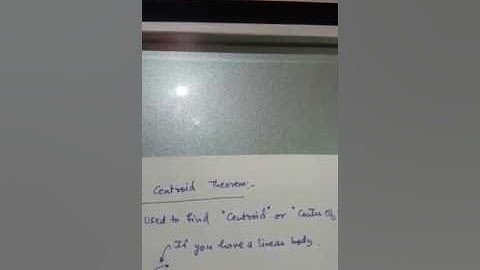 Centroid Theorem:-
Used to find "Centroid" or "Center of
If you have a linear body.